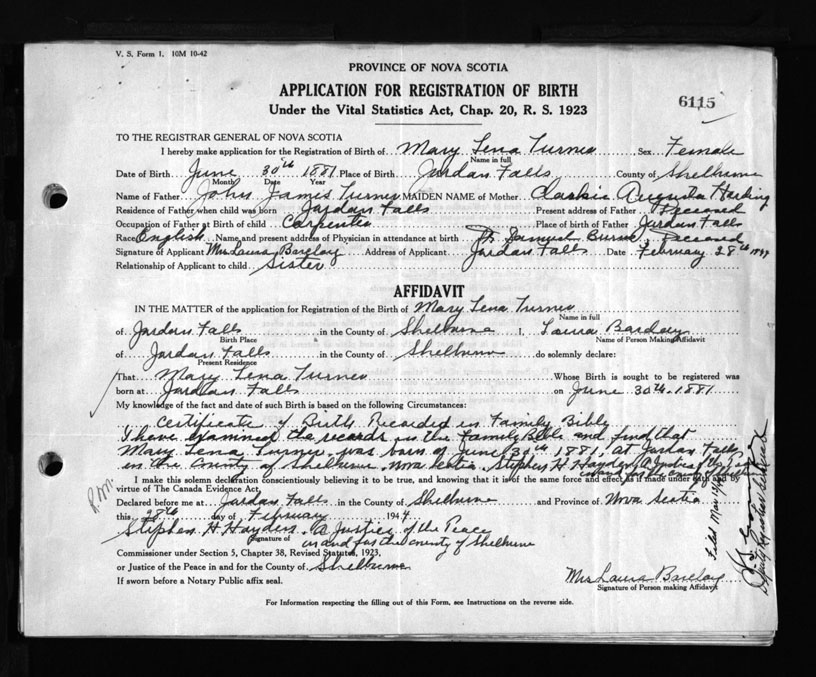 V. S. Form 1. 10M 10-42
PROVINCE OF NOVA SCOTIA
APPLICATION FOR REGISTRATION OF BIRTH
6115
Under the Vital Statistics Act, Chap. 20, R. S. 1923
TO THE REGISTRAR GENERAL OF NOVA SCOTIA
I hereby make application for the Registration of Birth of Mary Lena Turner Sex Female
Name in full
Date of Birth June 30th 1881 Place of Birth Jordan Falls County of Shelburne
Month Date Year
Name of Father John James Turner MAIDEN NAME of Mother Augusta Harding
Residence of Father when child was born Jordan Falls Present address of Father
Occupation of Father at Birth of child Carpenter Place of birth of Father Jordan Falls
Race English Name and present address of Physician in attendance at birth Dr. Samuel
Signature of Applicant Mrs Laura Barclay Address of Applicant Jordan Falls Date February 28th
Relationship of Applicant to child Sister
AFFIDAVIT
IN THE MATTER of the application for Registration of the Birth of Mary Lena Turner
Name in full
of Jordan Falls in the County of Shelburne I, Laura Barclay
Birth Place Name of Person Making Affidavit
of Jordan Falls in the County of Shelburne do solemnly declare:
Present Residence
That Mary Lena Turner Whose Birth is sought to be registered was
born at Jordan Falls on June 30th 1881
My knowledge of the fact and date of such Birth is based on the following Circumstances:
Certificate of Birth Recorded in Family Bible
I have examined the records in the Family Bible and find that
Mary Lena Turner was born on June 30th 1881, at Jordan Falls
in the County of Shelburne Nova Scotia, Stephen H Hayden, A Justice of the
I make this solemn declaration conscientiously believing it to be true, and knowing that it is of the same force and effect as if made under oath and by
virtue of The Canada Evidence Act.
Declared before me at Jordan Falls in the County of Shelburne and Province of Nova Scotia
this 28th day of February 1944
Stephen H. Hayden, A Justice of the Peace
Signature of
in and for the County of Shelburne
Commissioner under Section 5, Chapter 38, Revised Statutes, 1923,
or Justice of the Peace in and for the County of Shelburne
If sworn before a Notary Public affix seal.
Mrs Laura Barclay
Signature of Person making Affidavit
For Information respecting the filling out of this Form, see Instructions on the reverse side.